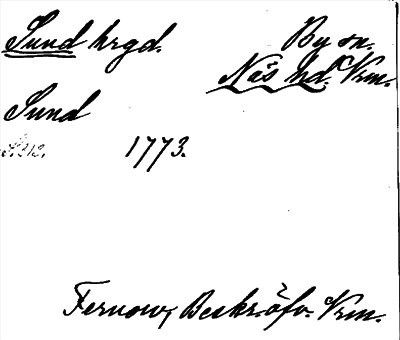 Sund hrgd. By sn.
Näs hd. Vrm.
Sund
1773.
Fernow, Beskr. öfv. Vrm.